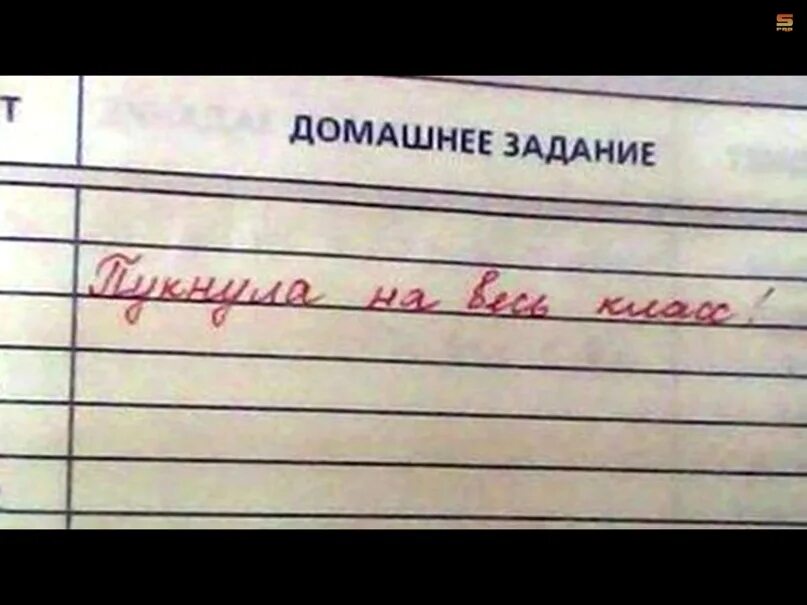 S
PRO
Т
ДОМАШНЕЕ ЗАДАНИЕ
Пукнула на весь класс!